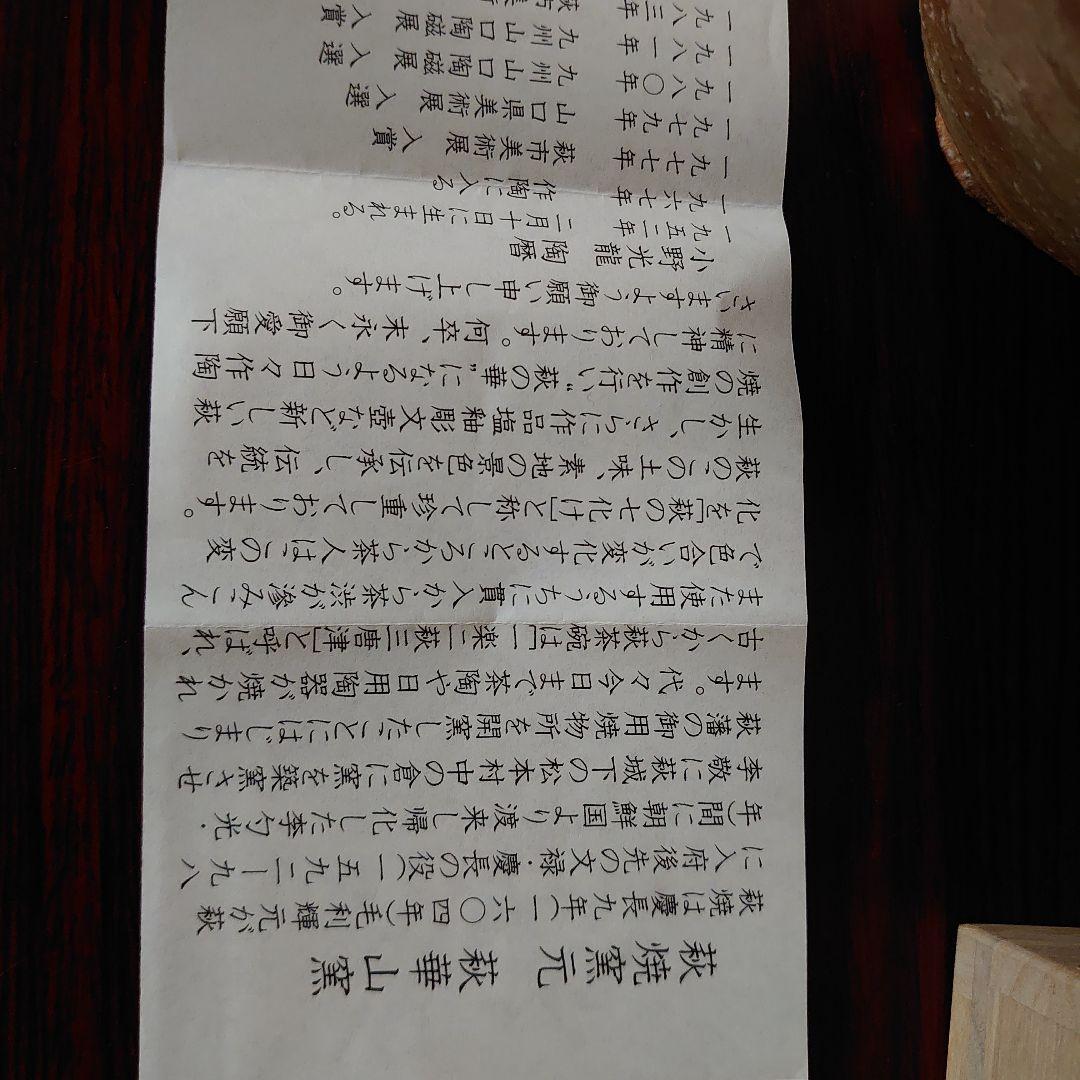 萩焼窯元　萩華山窯
萩焼は慶長九年(一六〇四年)毛利輝元が萩
に入府後先の文禄・慶長の役(一五九二ー九八
年)間に朝鮮国より渡来し帰化した李勺光・
李敬に萩城下の松本村中の倉に窯を築窯させ
萩藩の御用焼物所を開窯したことにはじまり
ます。代々今日まで茶陶や日用陶器が焼かれ
古くから萩茶碗は[一楽二萩三唐津]と呼ばれ、
また使用するうちに貫入から茶渋が滲みこん
で色合いが変化するところから茶人は、この変
化を[萩の七化け]と称して珍重しております。
萩の、この土味、素地の景色を伝承し、伝統を
生かし、さらに作品塩釉彫文壺など新しい萩
焼の創作を行い“萩の華”になるよう日々作陶
に精神しております。何卒、末永く御愛願下
さいますよう御願い申し上げます。
小野光龍　陶暦
一九五二年　二月十日に生まれる。
一九六七年　作陶に入る
一九七七年　萩市美術展　入賞
一九七九年　山口県美術展　入選
一九八〇年　九州山口陶磁展　入選
一九八一年　九州山口陶磁展　入賞
一九八三年